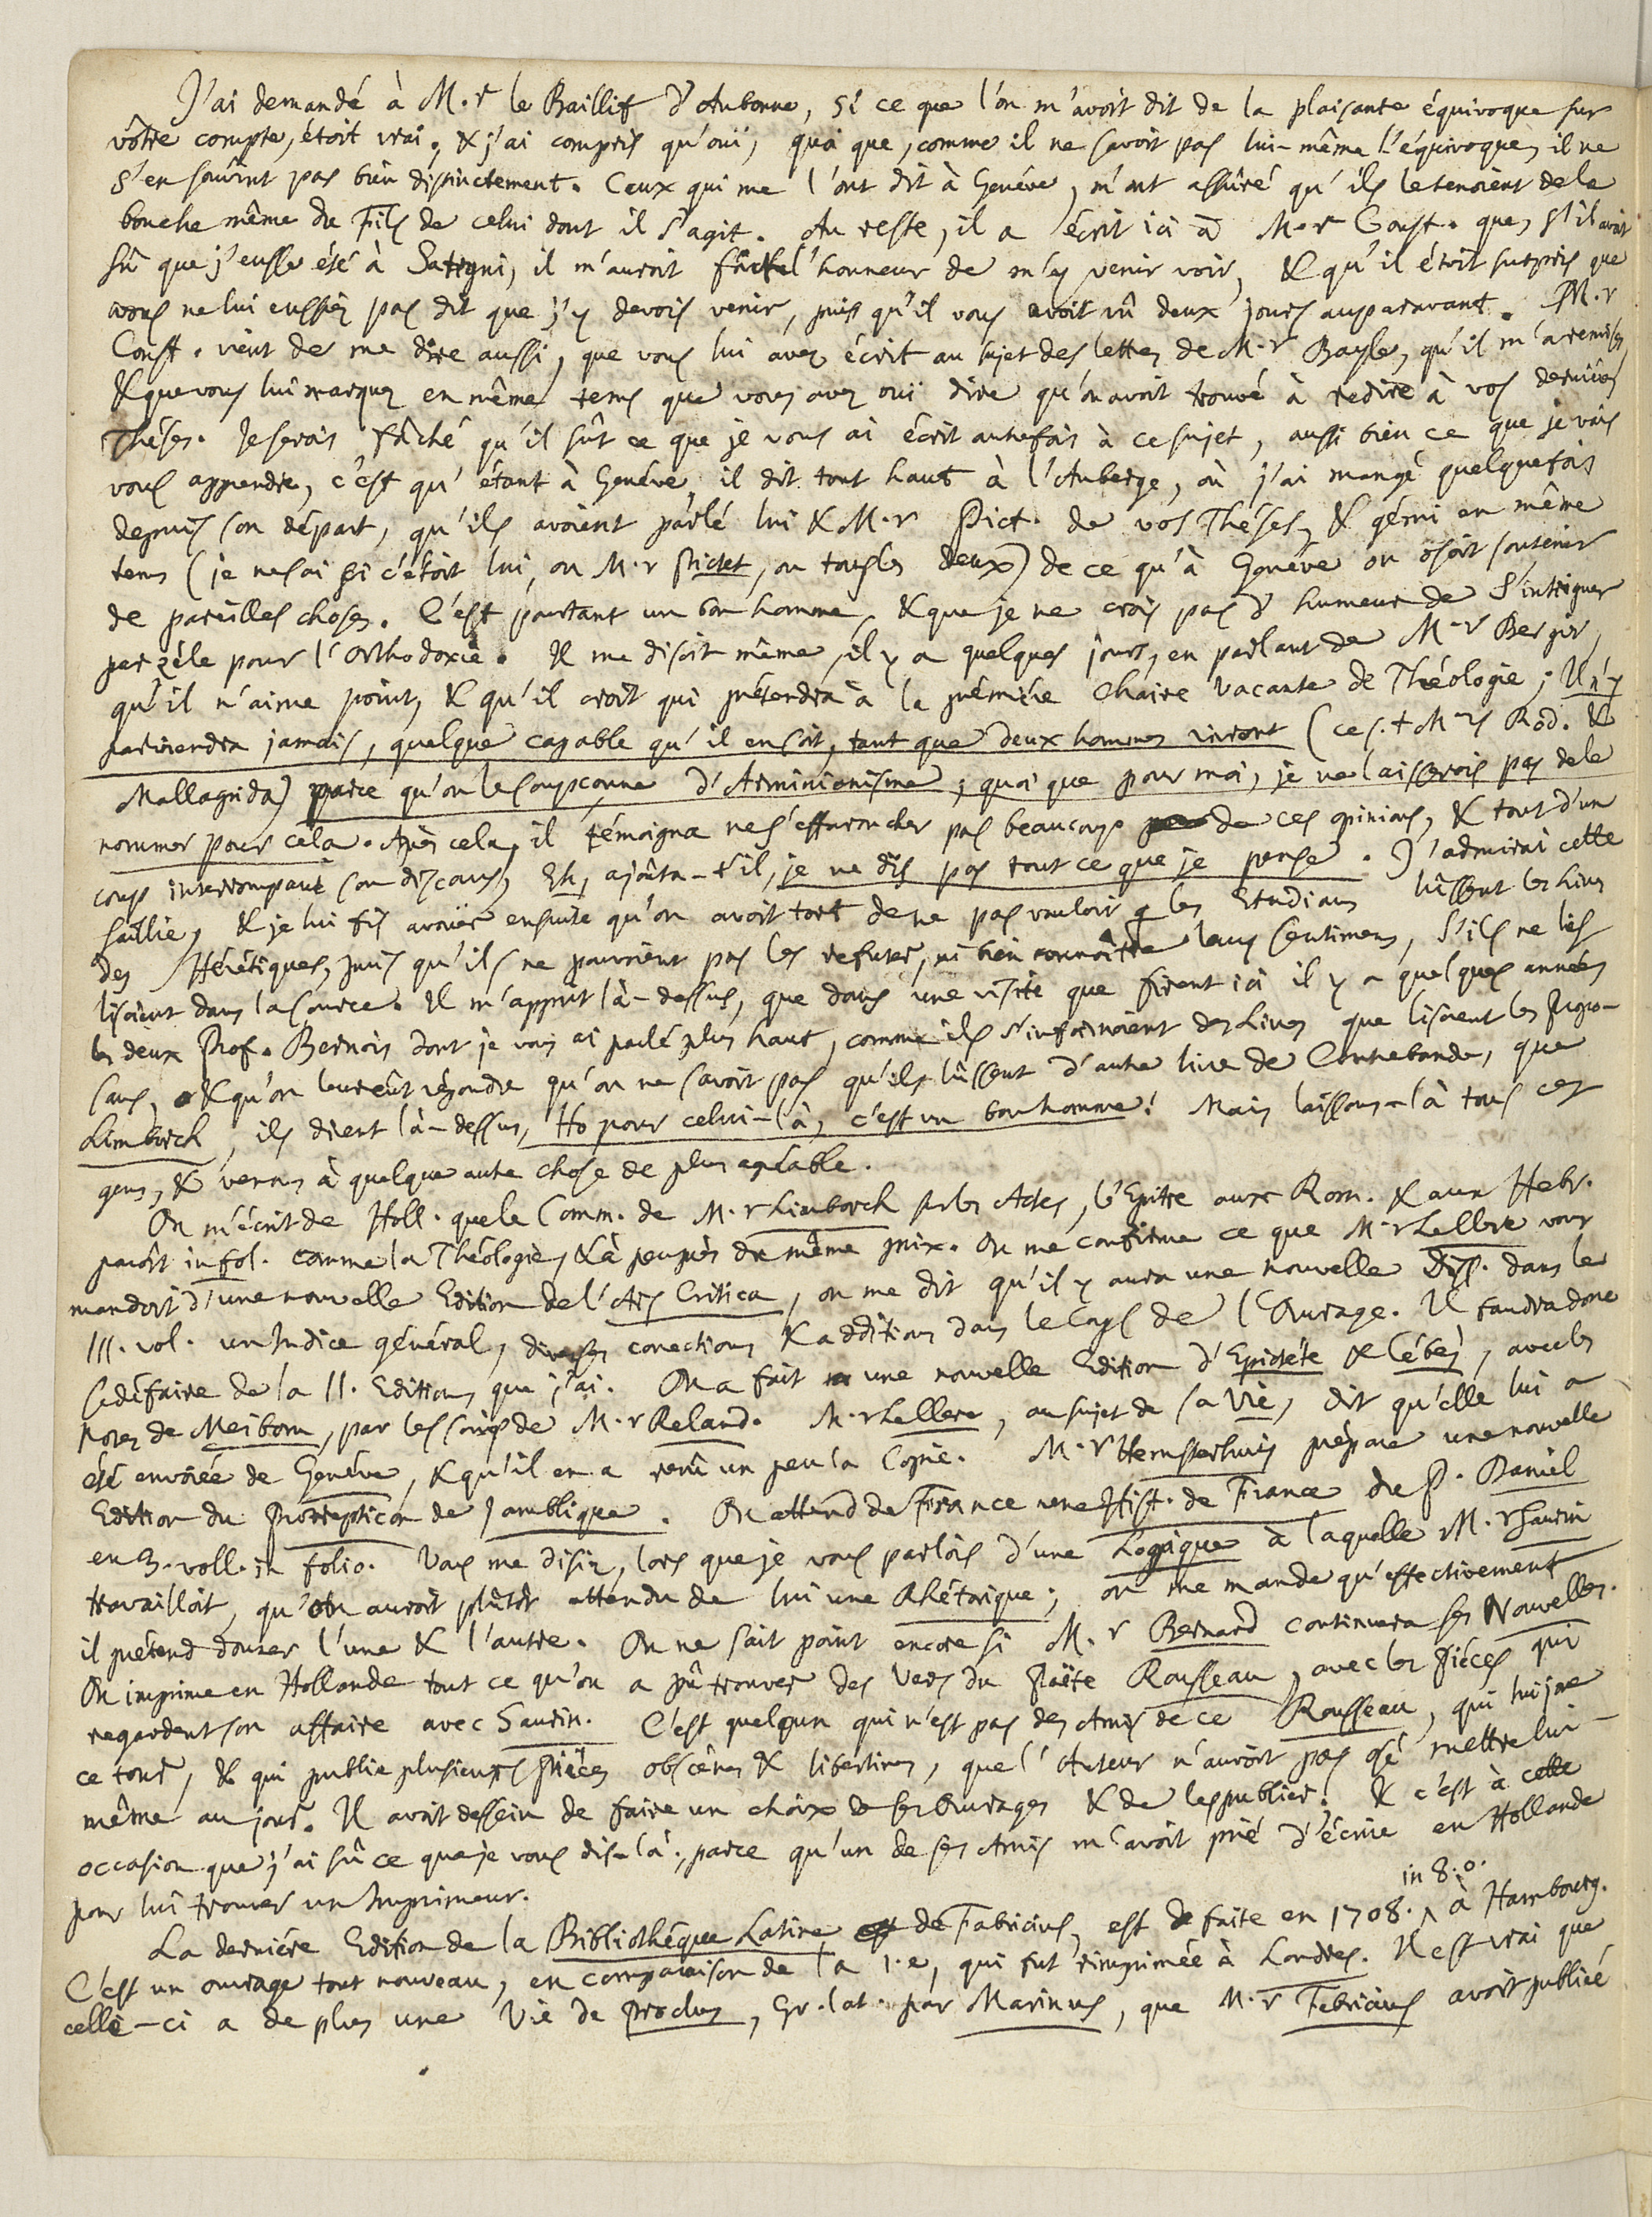 J'ai demandé à M.r le Baillif d'Aubonne, si ce que l'on m'avoit dit de la plaisante équivoque sur
vôtre compte, étoit vrai, & j'ai compris qu'ouï, quoi que, comme il ne savoit pas lui-même l'équivoque, il ne
s'en souvînt pas bien distinctement. Ceux qui me l'ont dit à Genéve, m'ont assûré qu'ils le tenoient de la
bouche même du Fils de celui dont il s'agit. Au reste, il a écrit ici à M.r Const. que, s'il avoit
sû que j'eusse été à Satigni, il m'auroit fait l'honneur de m'y venir voir, & qu'il étoit surpris que
vous ne lui eussiez pas dit que j'y devois venir, puis qu'il vous avoit vû deux jours auparavant. M.r
Const. vient de me dire aussi, que vous lui avez écrit au sujet des lettres de M.r Bayle, qu'il m'a remises,
& que vous lui marquez en même tems que vous avez ouï dire qu'on avoit trouvé à redire à vos derniéres
Théses. Je serois fâché qu'il sût ce que je vous ai écrit autrefois à ce sujet, aussi bien ce que je vais
vous apprendre, c'est qu'étant à Genéve, il dit tout haut à l'Auberge, où j'ai mangé quelquefois
depuis son départ, qu'ils avoient parlé lui & M.r Pict. de vos Théses, & gémi en même
tems (je ne sai si c'étoit lui, ou M.r Pictet, ou tous les deux) de ce qu'à Genéve on osoit soutenir
de pareilles choses. C'est pourtant un bon homme, & que je ne crois pas d'humeur de s'intriguer
par zéle pour l'Orthodoxie. Il me disoit même, il y a quelques jours, en parlant de M.r Bergier,
qu'il n'aime point, & qu'il croit qui prétendra à la prémiére Chaire vacante de Théologie; Il n'y
parviendra jamais, quelque capable qu'il en soit, tant que deux hommes vivront (ces. + M.rs Rod. &
Mallagrida) parce qu'on le soupçonne d'Arminianisme; quoi que pour moi, je ne laisserois pas de le
nommer pour cela. Après cela, il témoigna ne s'effaroucher pas beaucoup de ces opinions, & tout d'un
coup interrompant son discours, Eh, ajoûta-t'il, je ne dis pas tout ce que je pense. J'admirai cette
saillie, & je lui fis avouër ensuite qu'on avoit tort de ne pas vouloir q les Etudians lûssent les Livres
des Hérétiques, puis qu'ils ne pouvoient pas les refuter, ni bien connoître leurs sentimens, s'ils ne les
lisoient dans la source. Il m'apprit là-dessus, que dans une visite que firent ici il y a quelques années
les deux Prof. Bernois dont je vous ai parlé plus haut, comme ils s'informoient des Livres que lisoient les Propo-
sans, & qu'on leur eût répondu qu'on ne savoit pas qu'ils lûssent d'autre livre de Contrebande, que
Limborch, ils dirent là-dessus, Ho pour celui-là, c'est un bon homme! Mais laissons-là tous ces
gens, & venons à quelque autre chose de plus agréable.
On m'écrit de Holl. que le Comm. de M.r Limborch sur les Actes, l'Epitre aux Rom. & aux Hebr.
paroît in fol. comme la Théologie, & à peu près de même prix. On me confirme ce que M.r Le Clerc vous
mandoit d'une nouvelle Edition de l'Ars Critica, on me dit qu'il y aura une nouvelle Diss. dans le
III. vol. un Indice général, diverses corrections & additions dans le Corps de l'Ouvrage. Il faudra donc
se défaire de la II. Edition, que j'ai. On a fait une nouvelle Edition d'Epictéte & Cébès, avec les
notes de Meibom, par les soins de M.r Reland. M.r Le Clerc, au sujet de sa Vie, dit qu'elle lui a
été envoiée de Genéve, & qu'il en a revû un peu la Copie. M.r Hemsterhuis prépare une nouvelle
Edition du Protrepticon de Jamblique. On attend de France une Hist. de France du P. Daniel
en 3. voll. in folio. Vous me disiez, lors que je vous parlois d'une Logique à laquelle M.r Saurin
travailloit, qu'on auroit plûtôt attendu de lui une Rhétorique; on me mande qu'effectivement
il prétend donner l'une & l'autre. On ne sait point encore si M.r Bernard continuera ses Nouvelles.
On imprime en Hollande tout ce qu'on a pû trouver des Vers du Poëte Rousseau, avec les Piéces qui
regardent son affaire avec Saurin. C'est quelqun qui n'est pas des Amis de ce Rousseau, qui lui joue
ce tour, & qui publie plusieurs Piéces obscénes & libertines, que l'Auteur n'auroit pas osé mettre lui-
même au jour. Il avoit dessein de faire un choix de ses Ouvrages & de les publier. & c'est à cette
occasion que j'ai sû ce que je vous dis-là; parce qu'un de ses Amis m'avoit prié d'écrire en Hollande
pour lui trouver un Imprimeur.
La derniére Edition de la Bibliothéque Latine de Fabricius, est faite en 1708. in 8.o. à Hambourg.
C'est un ouvrage tout nouveau, en comparaison de la 1.e, qui fut rimprimée à Londres. Il est vrai que
celle-ci a de plus une Vie de Proclus, Gr. lat. par Marinus, que M.r Fabricius avoit publiée